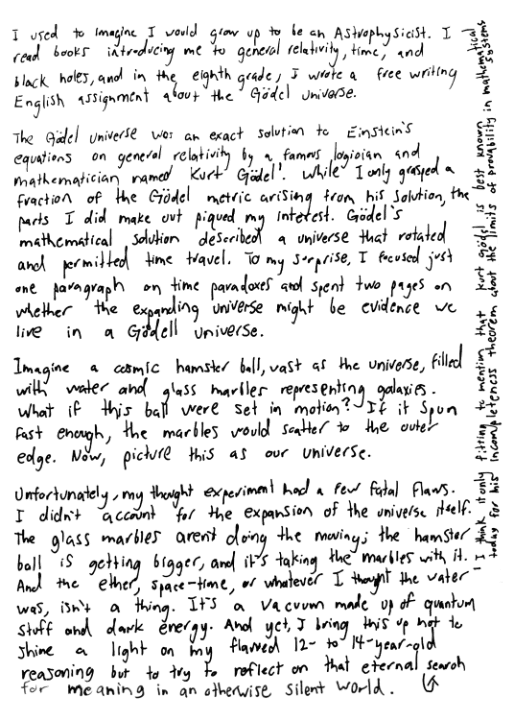 I used to imagine I would grow up to be an Astrophysicist. I
read books introducing me to general relativity, time, and
black holes, and in the eighth grade, I wrote a free writing
English assignment about the Gödel Universe.
The Gödel universe was an exact solution to Einstein's
equations on general relativity by a famous logician and
mathematician named Kurt Gödel¹. While I only grasped a
fraction of the Gödel metric arising from his solution, the
parts I did make out piqued my interest. Gödel's
mathematical solution described a universe that rotated
and permitted time travel. To my surprise, I focused just
one paragraph on time paradoxes and spent two pages on
whether the expanding universe might be evidence we
live in a Gödell universe.
Imagine a cosmic hamster ball, vast as the universe, filled
with water and glass marbles representing galaxies.
What if this ball were set in motion? If it spun
fast enough, the marbles would scatter to the outer
edge. Now, picture this as our universe.
Unfortunately, my thought experiment had a few fatal flaws.
I didn't account for the expansion of the universe itself.
The glass marbles arent doing the moving; the hamster
ball is getting bigger, and it's taking the marbles with it.
And the ether, space-time, or whatever I thought the water
was, isn't a thing. It's a vacuum made up of quantum
stuff and dark energy. And yet, I bring this up not to
shine a light on my flawed 12- to 14-year-old
reasoning but to try to reflect on that eternal search
for meaning in an otherwise silent world.
¹ I think it only fitting to mention that Kurt Gödel is best known
today for his incompleteness theorem about the limits of provability in mathematical
systems